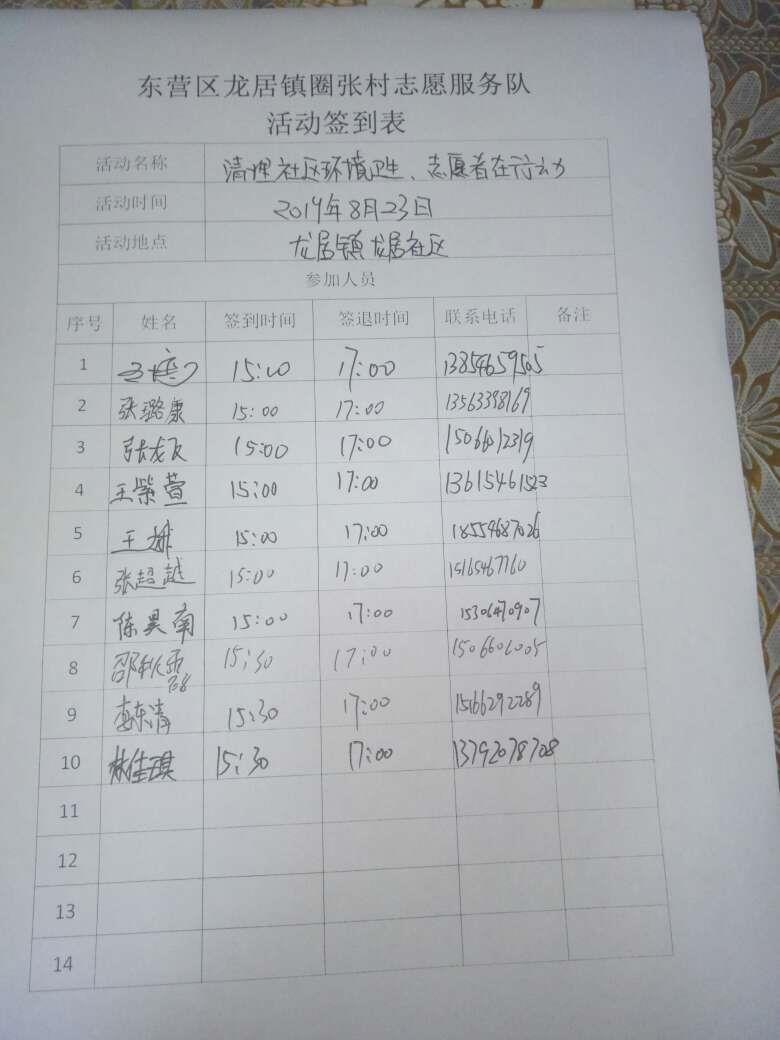 东营区龙居镇圈张村志愿服务队
活动签到表
活动名称 清理社区环境卫生、志愿者在行动
活动时间 2019年8月23日
活动地点 龙居镇龙居社区
参加人员
序号 姓名 签到时间 签退时间 联系电话 备注
1 15:00 17:00 13854659505
2 张璐康 15:00 17:00 13563398169
3 张龙飞 15:00 17:00 15066012319
4 王紫萱 15:00 17:00 13615461523
5 王娜 15:00 17:00 18554687026
6 张超越 15:00 17:00 15165467760
7 陈昊南 15:00 17:00 15306470907
8 邵秋雨 15:30 17:00 15066060005
9 李东清 15:30 17:00 15166292289
10 林佳琪 15:30 17:00 13792078708
11
12
13
14